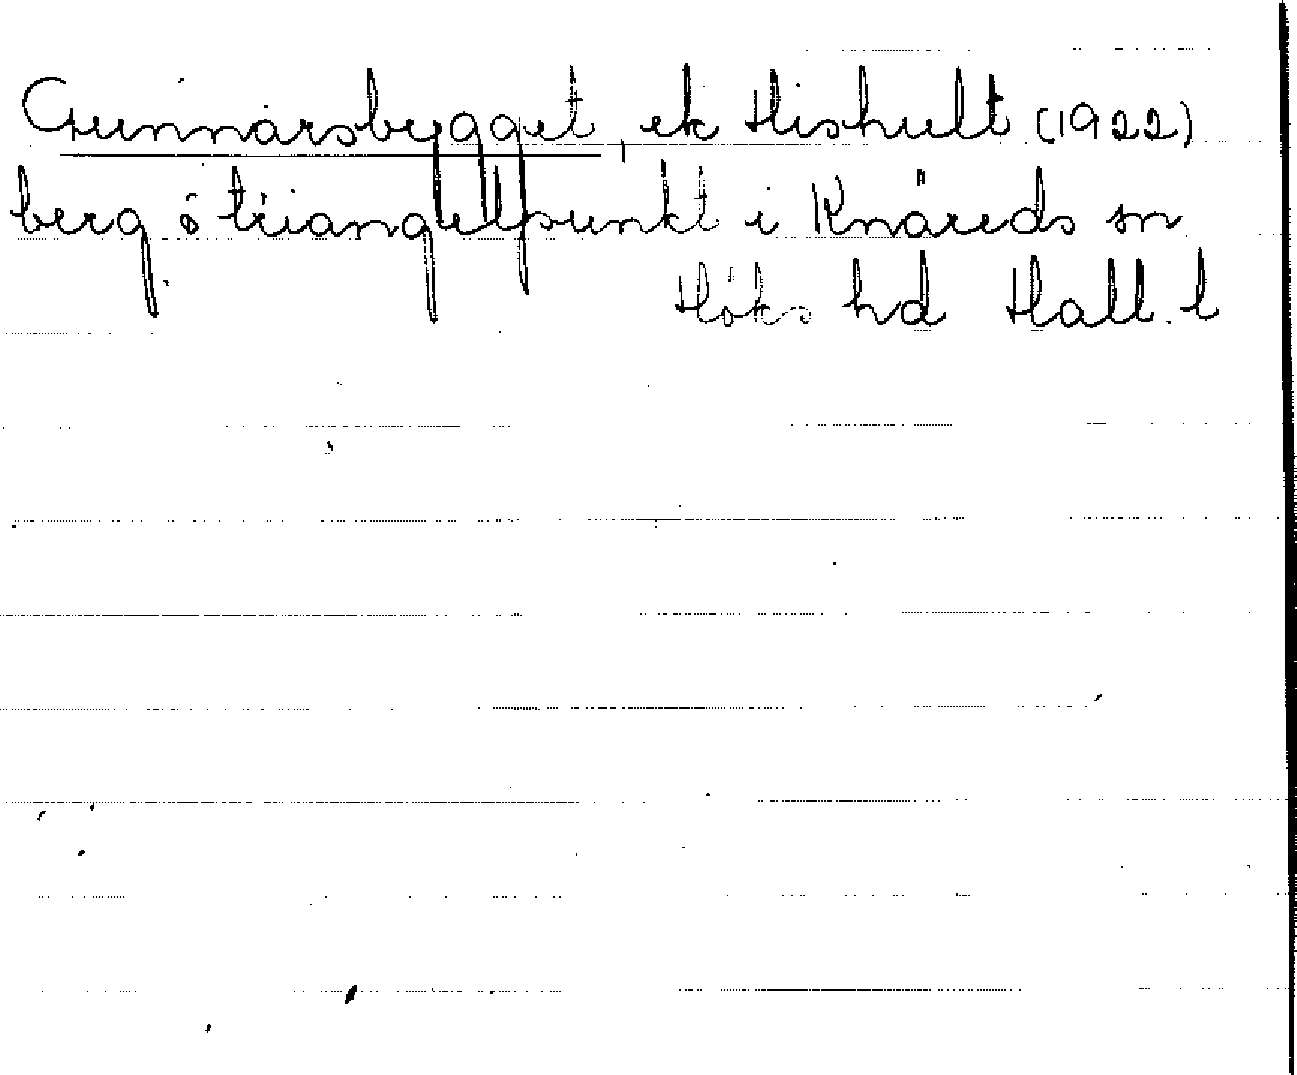 Gunnarsbygget, ek Hishult (1922)
berg o triangelpunkt i Knäreds sn
Höks hd Hall. l